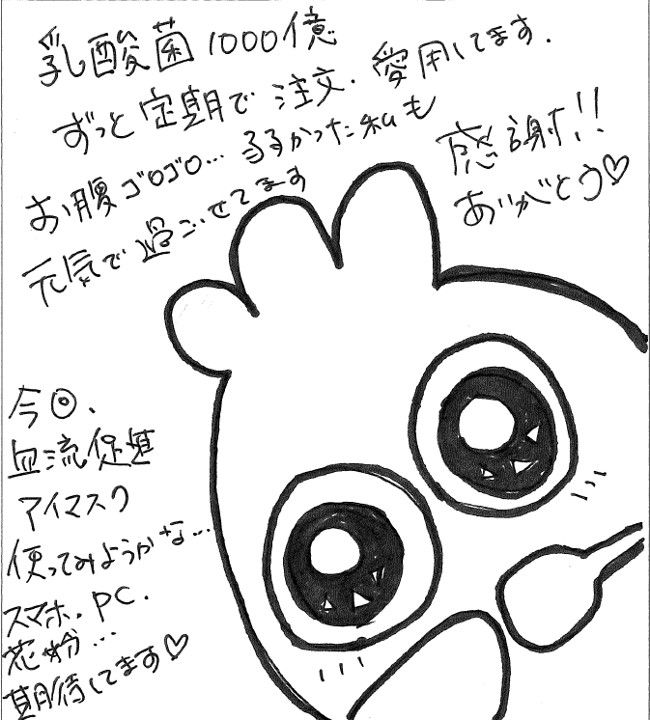 乳酸菌1000億
ずっと定期で注文、愛用してます.
お腹ゴロゴロ…弱かった私も
元気で過ごせてます
感謝!!
ありがとう♡
今回、
血流促進
アイマスク
使ってみようかな…
スマホ、PC、
花粉…
期待してます♡